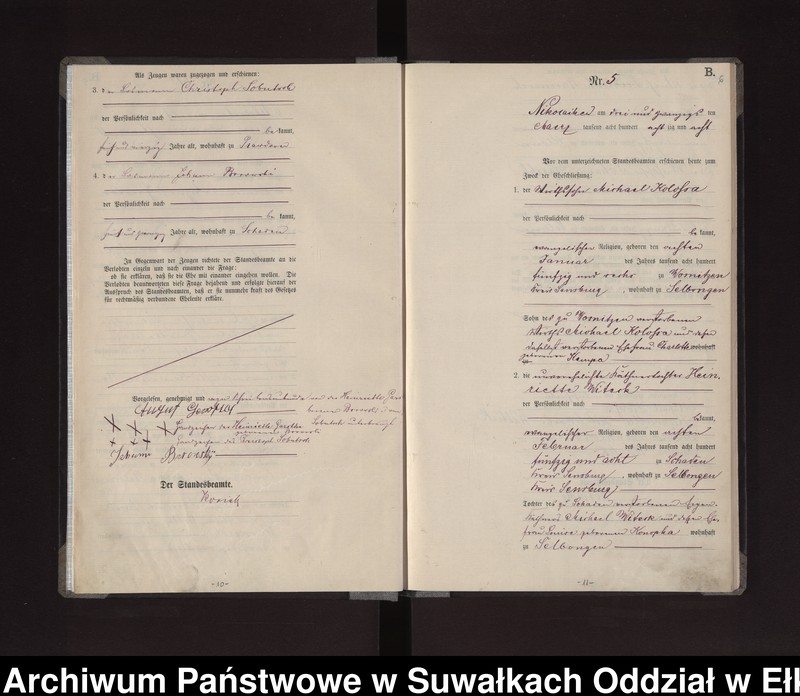 Als Zeugen waren zugezogen und erschienen:
3. der Christoph Sobutsch
der Persönlichkeit nach
be kannt,
Jahre alt, wohnhaft zu
4. der Johann Borowski
der Persönlichkeit nach
be kannt,
Jahre alt, wohnhaft zu Schaden
In Gegenwart der Zeugen richtete der Standesbeamte an die
Verlobten einzeln und nach einander die Frage:
ob sie erklären, daß sie die Ehe mit einander eingehen wollen. Die
Verlobten beantworteten diese Frage bejahend und erfolgte hierauf der
Ausspruch des Standesbeamten, daß er sie nunmehr kraft des Gesetzes
für rechtmäßig verbundene Eheleute erkläre.
Vorgelesen, genehmigt und
August
Handzeichen der Henriette
Handzeichen des Christoph Sobutsch
Johann Borowski
Der Standesbeamte.
-10-
B.
Nr. 5
6
Nikolaiken am drei und zwanzigs ten
Maerz tausend acht hundert acht zig und acht
Vor dem unterzeichneten Standesbeamten erschienen heute zum
Zweck der Eheschließung:
1. der Wirthssohn Michael Kolossa
der Persönlichkeit nach
be kannt,
evangelischer Religion, geboren den achten
Januar des Jahres tausend acht hundert
fünfzig und sechs zu Wosnitzen
Kreis Sensburg, wohnhaft zu Selbongen
Sohn des zu Wosnitzen verstorbenen
Wirths Michael Kolossa und dessen
daselbst verstorbenen Ehefrau Charlotte wohnhaft
geborenen Kempa
2. die unverehelichte Käthnertochter Hein-
riette Witeck
der Persönlichkeit nach
be kannt,
evangelischer Religion, geboren den achten
Februar des Jahres tausend acht hundert
fünfzig und acht zu Schaden
Kreis Sensburg, wohnhaft zu Selbongen
Kreis Sensburg
Tochter des zu Schaden verstorbenen Eigen-
käthners Michael Witeck und dessen Ehe-
frau Louise geborenen Konopka wohnhaft
zu Selbongen
-11-
Archiwum Państwowe w Suwałkach Oddział w Eł